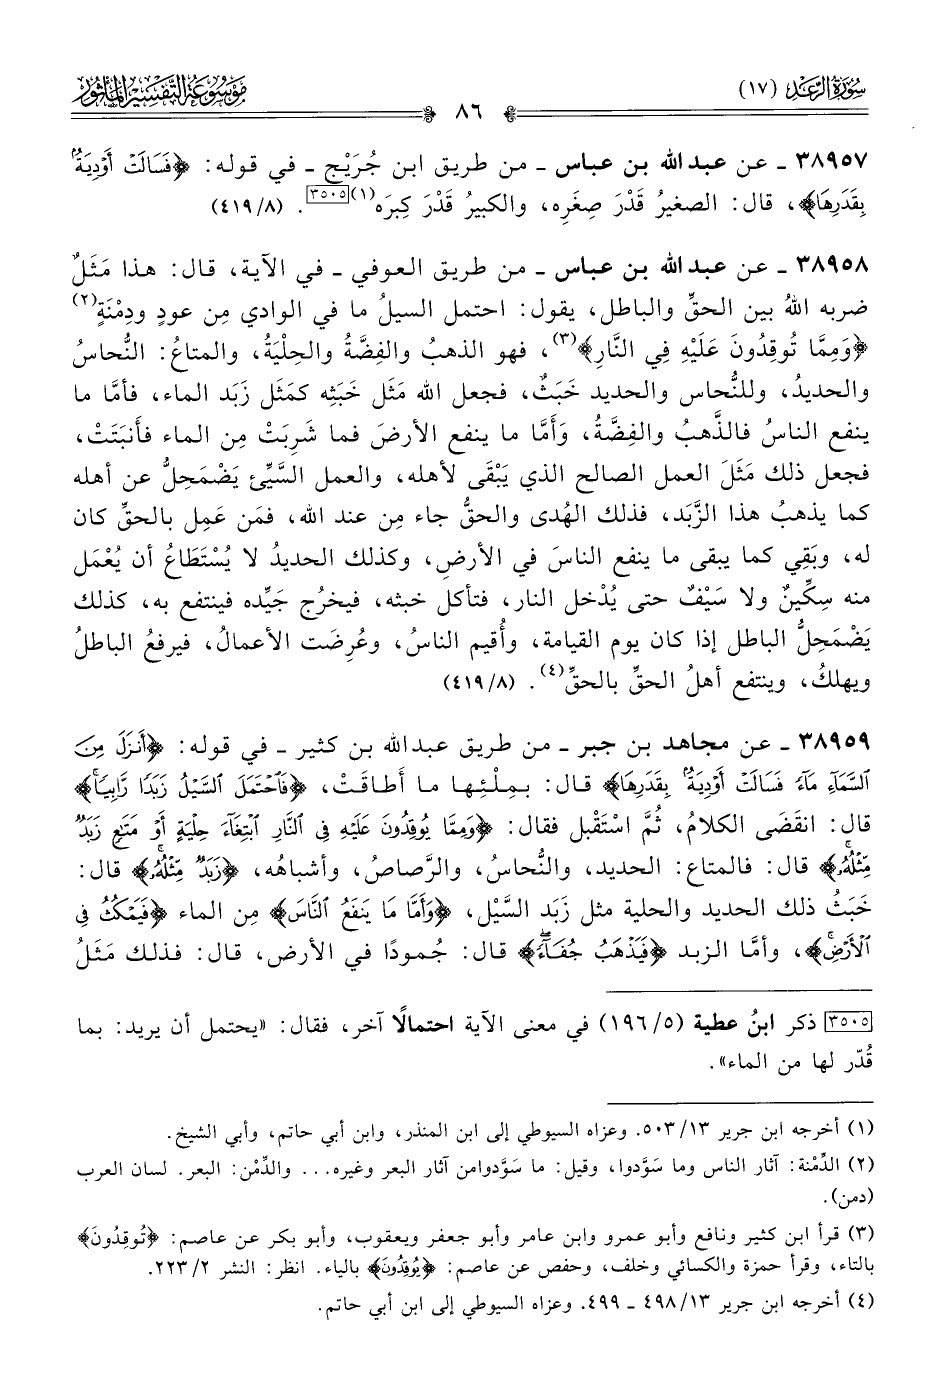 سُورَةُ الرَّعْدِ (١٧)
٨٦
مَوْسُوعَةُ التَّفْسِيرِ المَأْثُور
٣٨٩٥٧ - عن عبد الله بن عباس - من طريق ابن جُرَيْج - في قوله: ﴿فَسَالَتْ أَوْدِيَةٌ
بِقَدَرِهَا﴾، قال: الصغيرُ قَدْرَ صِغَرِه، والكبيرُ قَدْرَ كِبَرَه(١)[٣٥٠٥]. (٨/ ٤١٩)
٣٨٩٥٨ - عن عبد الله بن عباس - من طريق العوفي - في الآية، قال: هذا مَثَلٌ
ضربه اللهُ بين الحقِّ والباطل، يقول: احتمل السيلُ ما في الوادي مِن عودٍ ودِمْنَةٍ(٢)
﴿وَمِمَّا تُوقِدُونَ عَلَيْهِ فِي النَّارِ﴾(٣)، فهو الذهبُ والفِضَّةُ والحِلْيَةُ، والمتاعُ: النُّحاسُ
والحديدُ، وللنُّحاس والحديد خَبَثٌ، فجعل الله مَثَل خَبَثِه كمَثَل زَبَد الماء، فأمَّا ما
ينفع الناسُ فالذَّهبُ والفِضَّةُ، وَأَمَّا ما ينفع الأرضَ فما شَرِبَتْ مِن الماء فأنبَتَتْ،
فجعل ذلك مَثَلَ العمل الصالح الذي يَبْقَى لأهله، والعمل السَّيِّئ يَضْمَحِلُّ عن أهله
كما يذهبُ هذا الزَّبَد، فذلك الهُدى والحقُّ جاء مِن عند الله، فمَن عَمِل بالحقِّ كان
له، وبَقِي كما يبقى ما ينفع الناسَ في الأرضِ، وكذلك الحديدُ لا يُسْتَطَاعُ أن يُعْمَل
منه سِكِّينٌ ولا سَيْفٌ حتى يُدْخل النار، فتأكل خبثه، فيخرُج جَيِّده فينتفع به، كذلك
يَضْمَحِلُّ الباطل إذا كان يوم القيامة، وأُقيم الناسُ، وعُرِضَت الأعمالُ، فيرفعُ الباطلُ
ويهلكُ، وينتفع أهلُ الحقِّ بالحقِّ(٤). (٨/ ٤١٩)
٣٨٩٥٩ - عن مجاهد بن جبر - من طريق عبد الله بن كثير - في قوله: ﴿أَنزَلَ مِنَ
السَّمَاءِ مَاءً فَسَالَتْ أَوْدِيَةٌ بِقَدَرِهَا﴾ قال: بمِلْئِها ما أَطاقَتْ، ﴿فَاحْتَمَلَ السَّيْلُ زَبَدًا رَّابِيًا﴾
قال: انقَضَى الكلامُ، ثُمَّ اسْتَقْبل فقال: ﴿وَمِمَّا يُوقِدُونَ عَلَيْهِ فِي النَّارِ ابْتِغَاءَ حِلْيَةٍ أَوْ مَتَاعٍ زَبَدٌ
مِّثْلُهُ﴾ قال: فالمتاع: الحديد، والنُّحاسُ، والرَّصاصُ، وأشباهُه، ﴿زَبَدٌ مِّثْلُهُ﴾ قال:
خَبَثُ ذلك الحديد والحلية مثل زَبَد السَّيْل، ﴿وَأَمَّا مَا يَنفَعُ النَّاسَ﴾ مِن الماء ﴿فَيَمْكُثُ فِي
الْأَرْضِ﴾، وأمَّا الزبد ﴿فَيَذْهَبُ جُفَاءً﴾ قال: جُمودًا في الأرض، قال: فذلك مَثَلُ
[٣٥٠٥] ذكر ابنُ عطية (٥/ ١٩٦) في معنى الآية احتمالًا آخر، فقال: «يحتمل أن يريد: بما
قُدّر لها من الماء».
(١) أخرجه ابن جرير ١٣/ ٥٠٣. وعزاه السيوطي إلى ابن المنذر، وابن أبي حاتم، وأبي الشيخ.
(٢) الدِّمْنة: آثار الناس وما سَوَّدوا، وقيل: ما سَوَّدوامن آثار البعر وغيره... والدِّمْن: البعر. لسان العرب
(دمن).
(٣) قرأ ابن كثير ونافع وأبو عمرو وابن عامر وأبو جعفر ويعقوب، وأبو بكر عن عاصم: ﴿تُوقِدُونَ﴾
بالتاء، وقرأ حمزة والكسائي وخلف، وحفص عن عاصم: ﴿يُوقِدُونَ﴾ بالياء. انظر: النشر ٢/ ٢٢٣.
(٤) أخرجه ابن جرير ١٣/ ٤٩٨ - ٤٩٩. وعزاه السيوطي إلى ابن أبي حاتم.